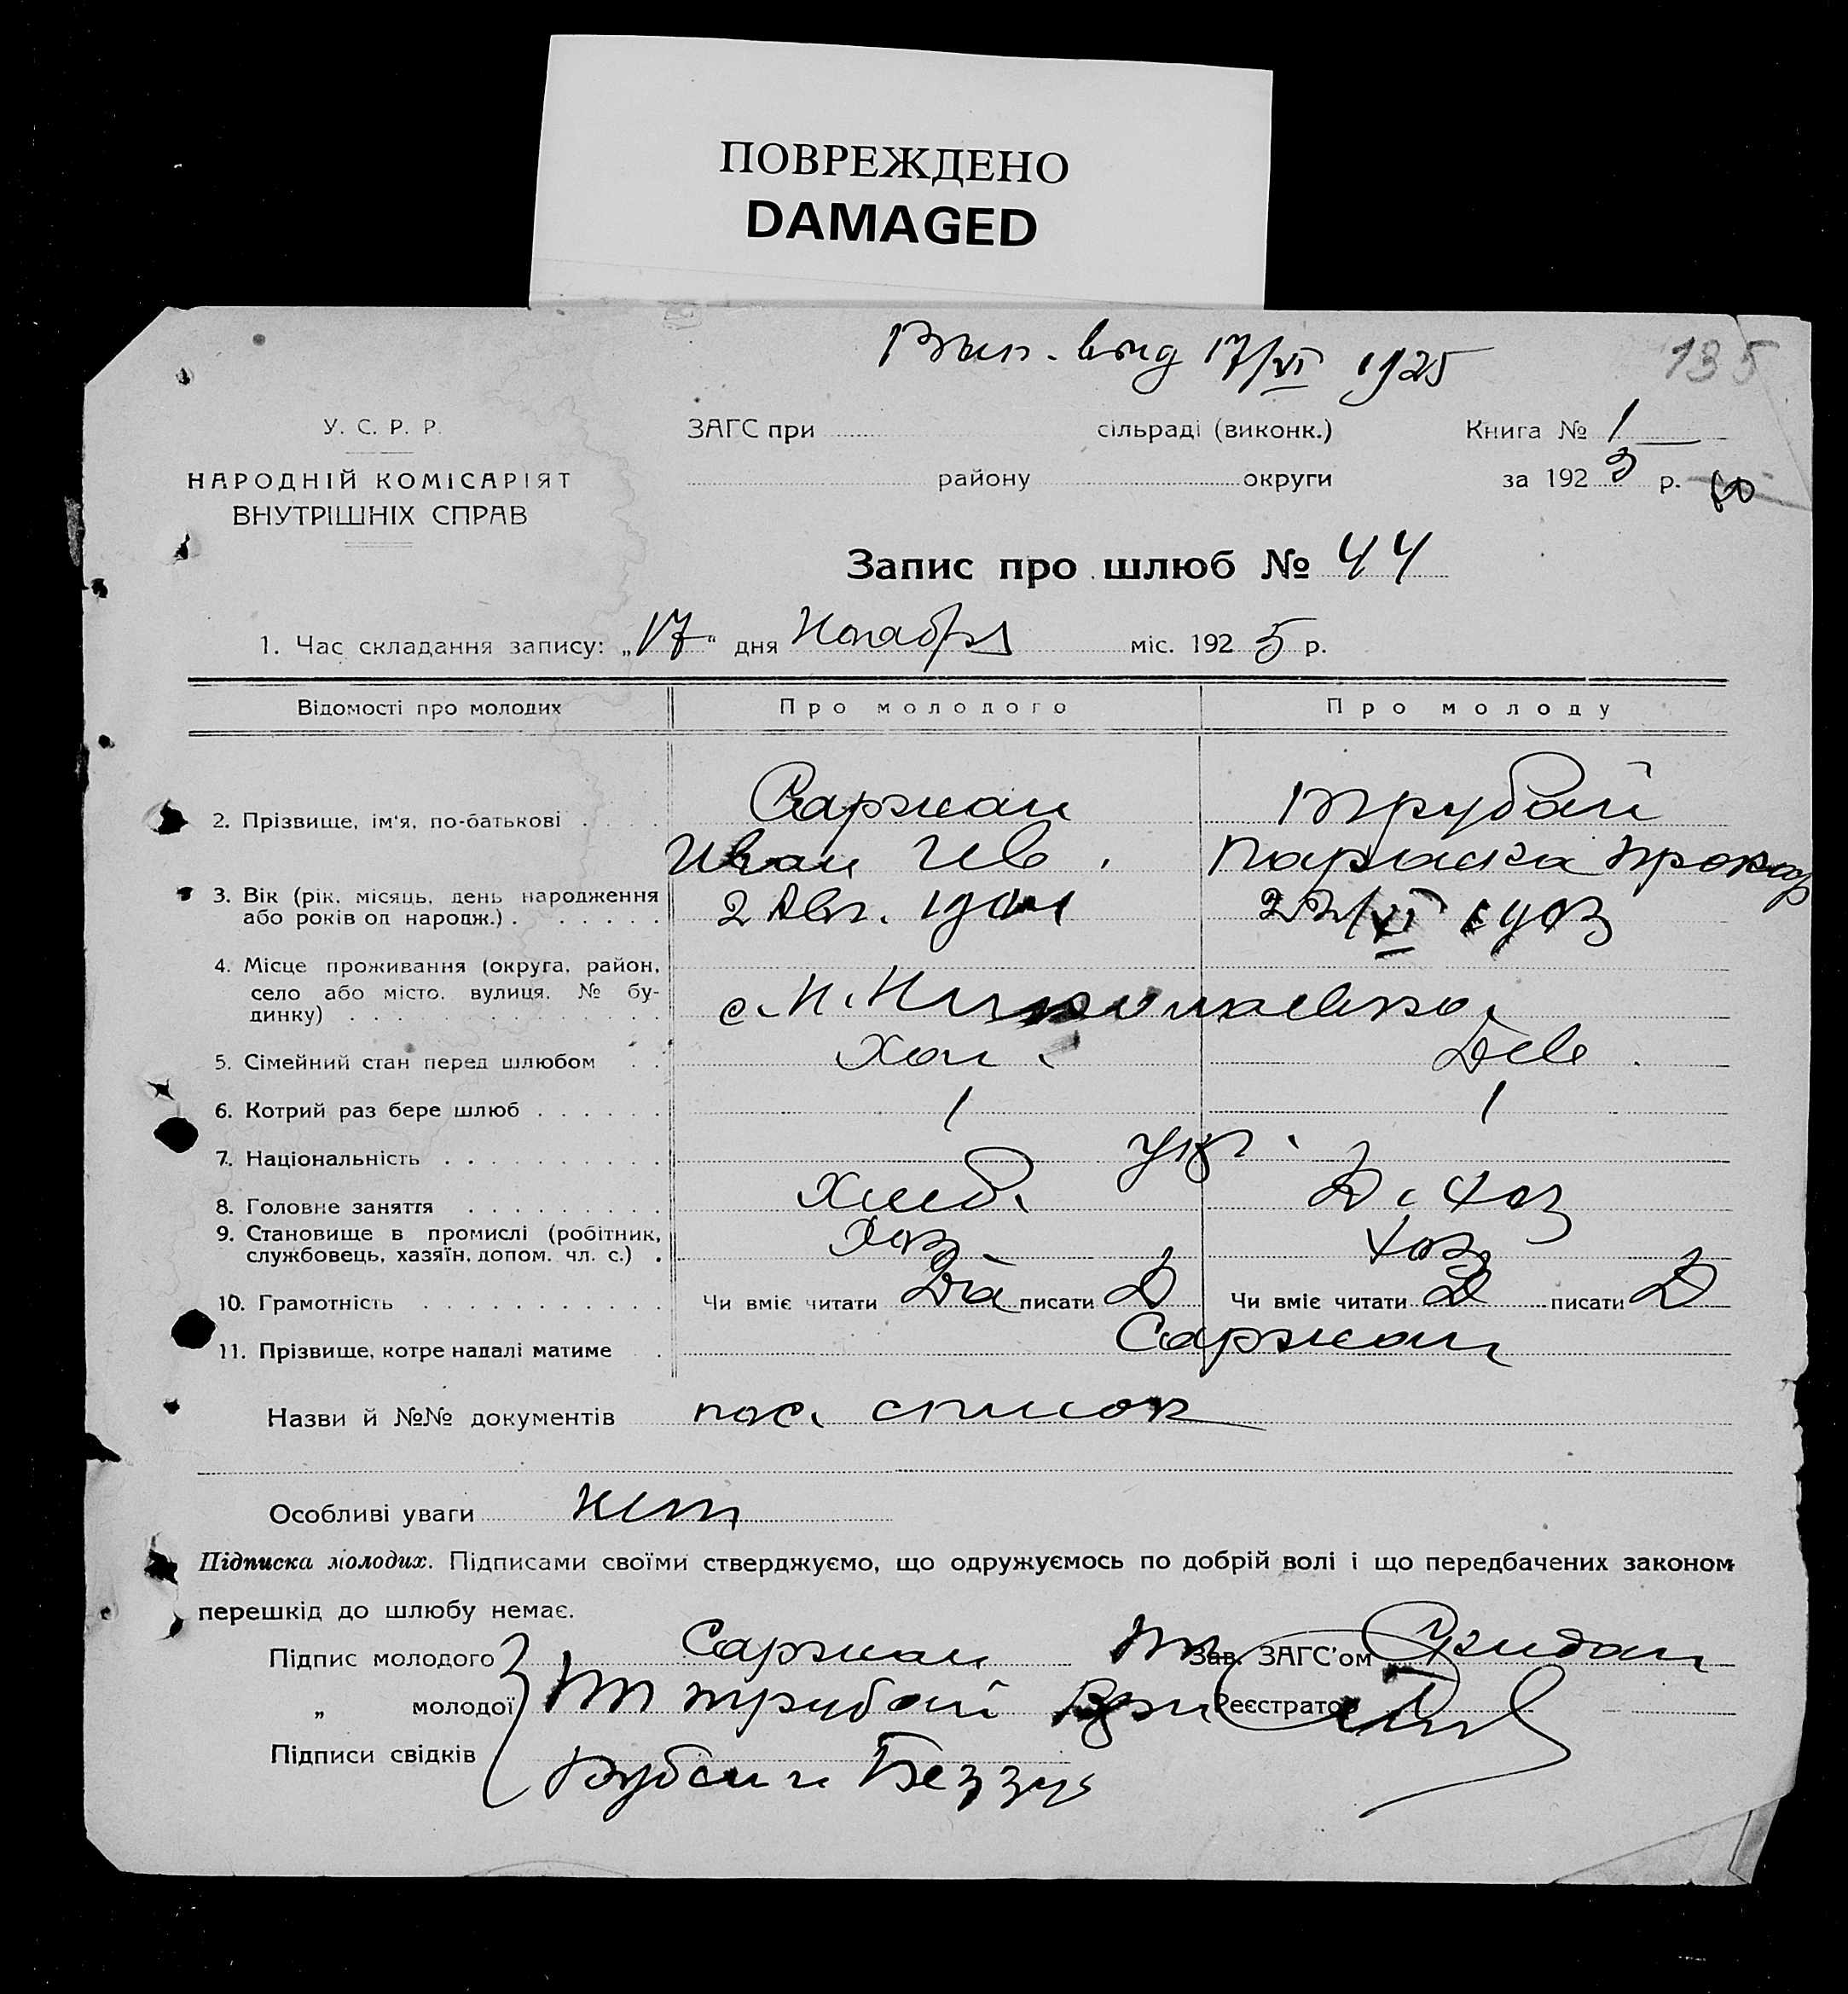 ПОВРЕЖДЕНО
DAMAGED
17/VI 1925
135
У. С. Р. Р.
ЗАГС при сільраді (виконк.) Книга № 1
НАРОДНІЙ КОМІСАРІЯТ
району округи за 1925 р.
ВНУТРІШНІХ СПРАВ
Запис про шлюб № 44
1. Час складання запису: „17" дня Ноября міс. 1925 р.
Відомості про молодих Про молодого Про молоду
2. Прізвище, ім'я, по-батькові Саржан Трубай
Иван Параска
3. Вік (рік, місяць, день народження 2 Авг. 22/VI 1903
або років од народж.)
4. Місце проживання (округа, район,
село або місто, вулиця, № бу-
динку) с. Н. Николаевка
5. Сімейний стан перед шлюбом Хол. Дев.
6. Котрий раз бере шлюб 1 1
7. Національність укр.
8. Головне заняття Хлеб. Д. хоз
9. Становище в промислі (робітник, Хоз. хоз
службовець, хазяїн, допом. чл. с.)
10. Грамотність Чи вміє читати Да писати Д Чи вміє читати Д писати Д
11. Прізвище, котре надалі матиме Саржан
Назви й №№ документів пос. список
Особливі уваги нет
Підписка молодих. Підписами своїми стверджуємо, що одружуємось по добрій волі і що передбачених законом
перешкід до шлюбу немає.
Підпис молодого Саржан Зав. ЗАГС'ом
„ молодої Трубай Реєстратор
Підписи свідків